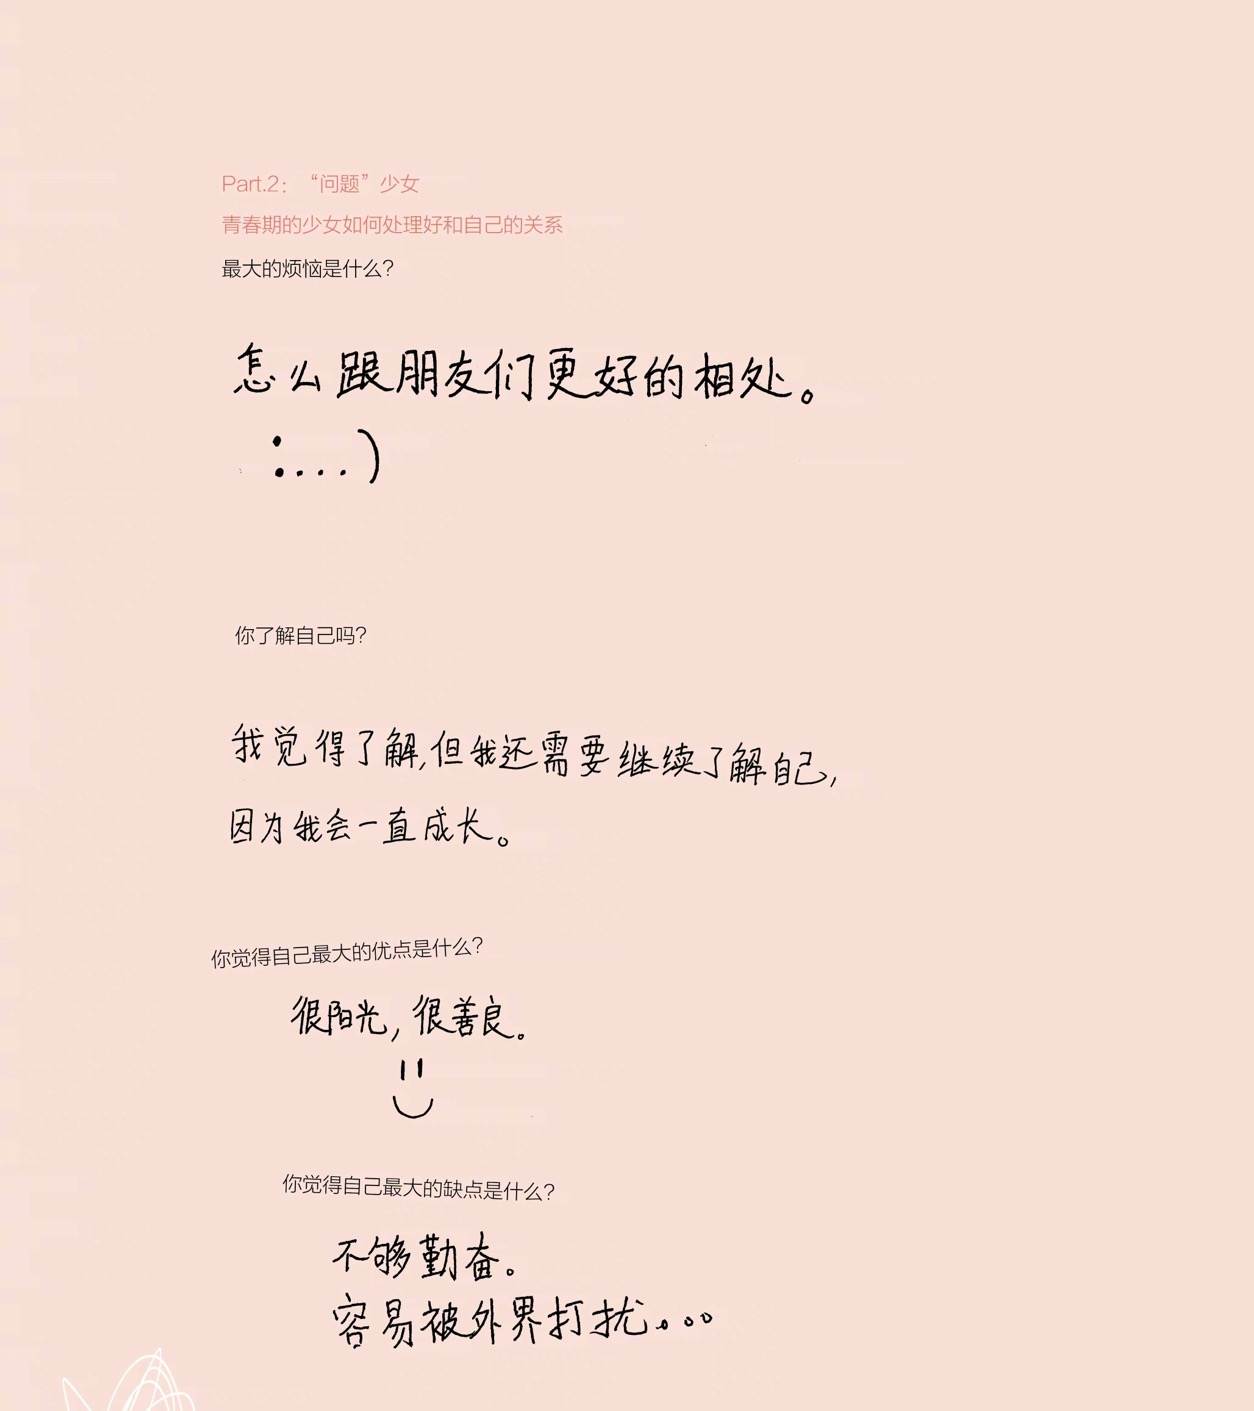 Part.2：“问题”少女
青春期的少女如何处理好和自己的关系
最大的烦恼是什么？
怎么跟朋友们更好的相处。
:...)
你了解自己吗？
我觉得了解,但我还需要继续了解自己,
因为我会一直成长。
你觉得自己最大的优点是什么？
很阳光,很善良。
你觉得自己最大的缺点是什么？
不够勤奋。
容易被外界打扰。。。